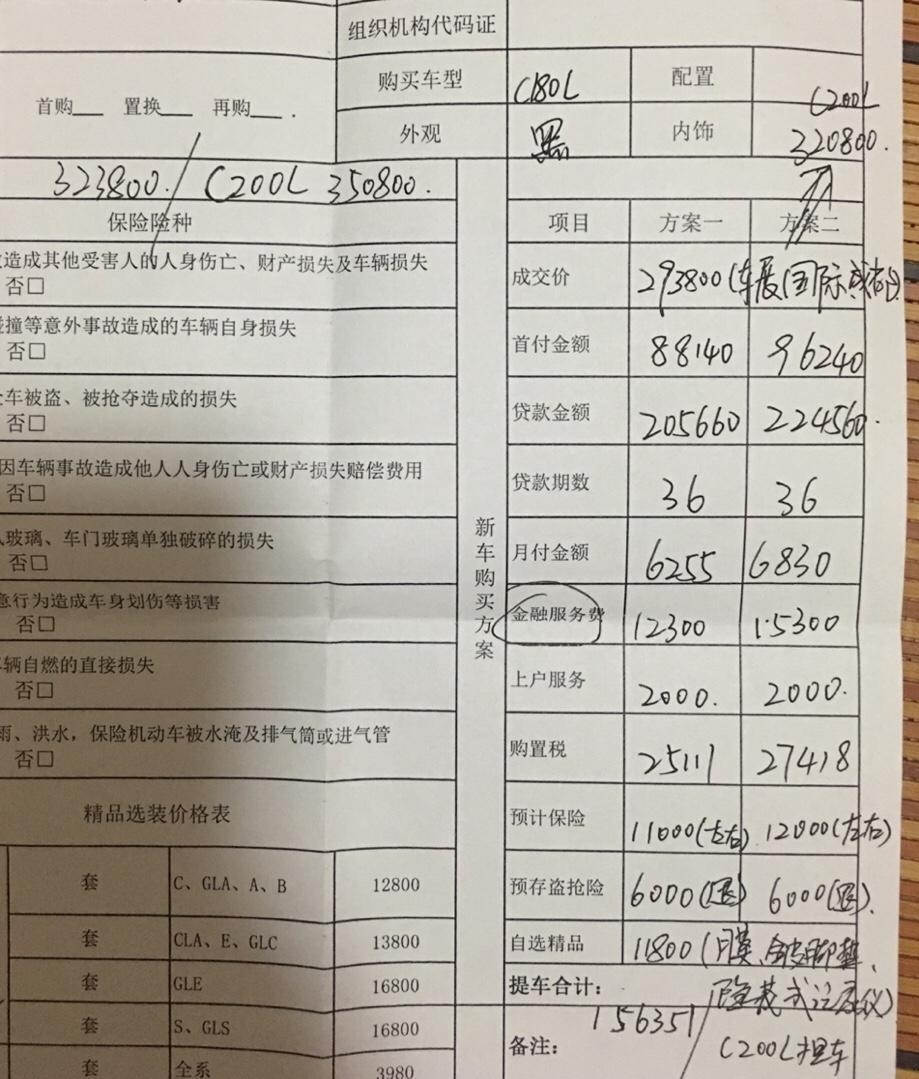 组织机构代码证
购买车型 C180L 配置 C200L
首购___ 置换___ 再购___.
外观 黑 内饰 320800.
323800. C200L 350800.
保险险种
项目 方案一 方案二
造成其他受害人的人身伤亡、财产损失及车辆损失
否□
成交价 293800(车展(国际
碰撞等意外事故造成的车辆自身损失
否□
首付金额 88140 96240
车被盗、被抢夺造成的损失
否□
贷款金额 205660 224560.
因车辆事故造成他人人身伤亡或财产损失赔偿费用
否□
贷款期数 36 36
玻璃、车门玻璃单独破碎的损失
否□
新车购买方案
月付金额 6255 6830
意行为造成车身划伤等损害
否□
金融服务费 12300 15300
车辆自燃的直接损失
否□
上户服务 2000. 2000.
雨、洪水，保险机动车被水淹及排气筒或进气管
否□
购置税 25111 27418
精品选装价格表
预计保险 11000(左右) 12000(左右)
套 C、GLA、A、B 12800
预存盗抢险 6000(退) 6000(退).
套 CLA、E、GLC 13800
自选精品 11800(膜、全皮脚垫、
套 GLE 16800
提车合计： 156351 隐藏式记录仪)
套 S、GLS 16800
备注： C200L提车
套 全系 3980